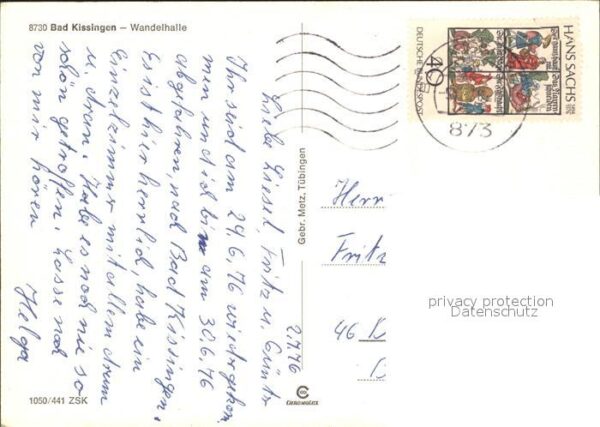 8730 Bad Kissingen – Wandelhalle
2.7.76
Liebe Liesel, Fritz u. Günter
Ihr seid am 29.6.76 wieder gekom
men und ich bin am 30.6.76
abgefahren, nach Bad Kissingen.
Es ist hier herrlich, habe ein
Einzelzimmer mit allem drum
u. dran. Habe es noch nie so
schön getroffen. Lasse noch
von mir hören
Helga
1050/441 ZSK
Gebr. Metz, Tübingen
HANS SACHS
DEUTSCHE BUNDESPOST
40
873
Herr
Fritz
46 D
privacy protection
Datenschutz